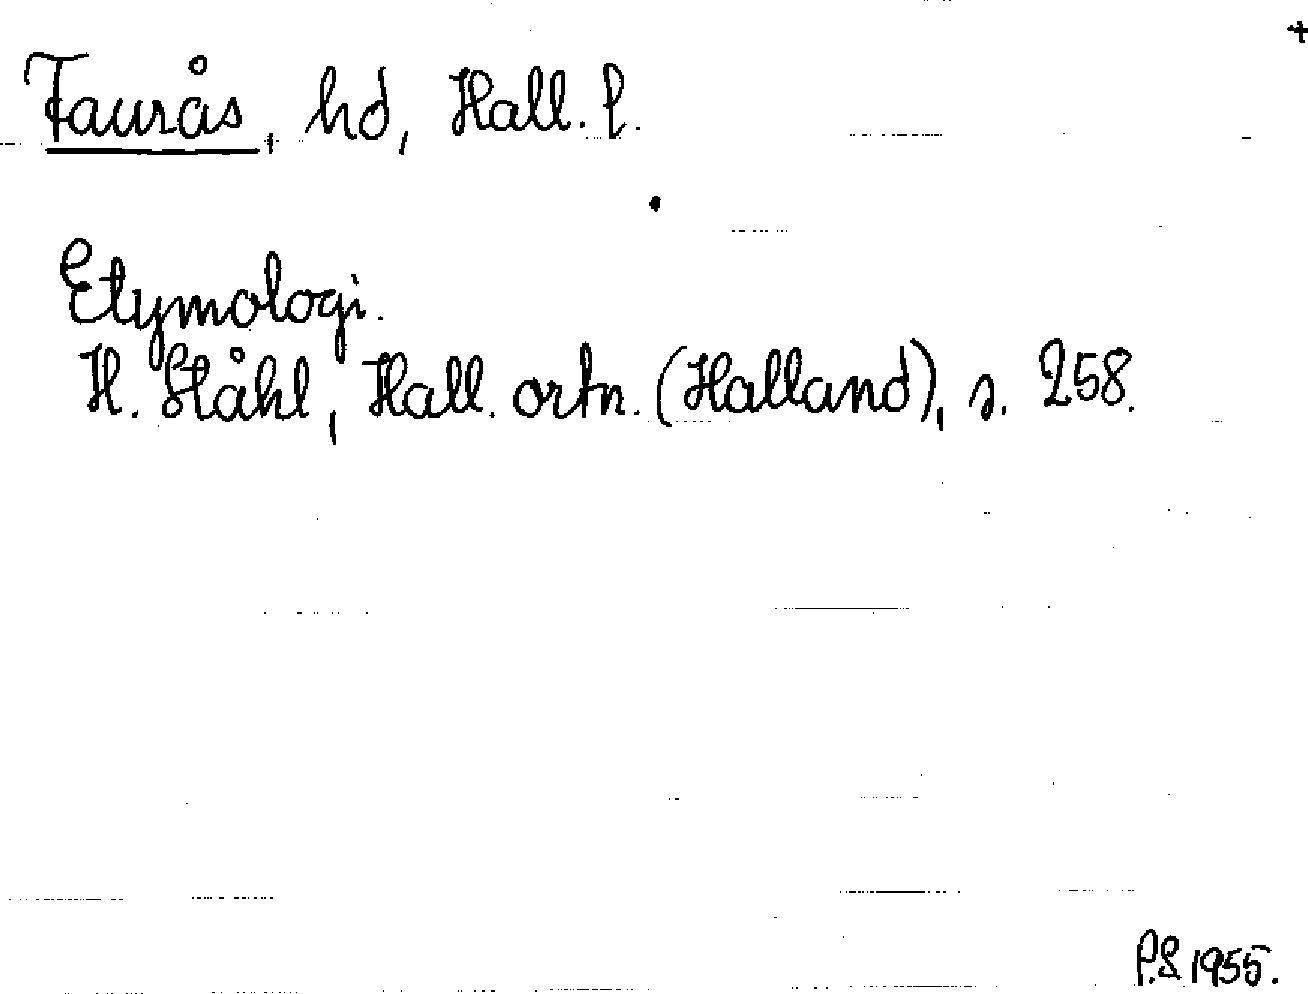 Faurås, hd, Hall. l.
Etymologi.
H. Ståhl, Hall. ortn. (Halland), s. 258.
P.S 1955.